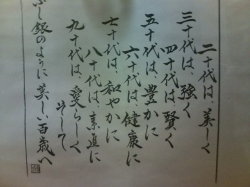 二十代は、美しく
三十代は、強く
四十代は賢く
五十代は、豊かに
六十代は、健康に
七十代は、和やかに
八十代は、素直に
九十代は、愛らしく
そして
いぶし銀のように美しい百歳へ